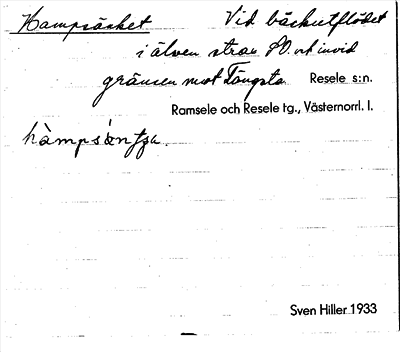 Hampsänket Vid bäckutflödet
i älven strax SO. ut invid
gränsen mot Tängsta Resele s:n.
Ramsele och Resele tg., Västernorrl. l.
Sven Hiller 1933